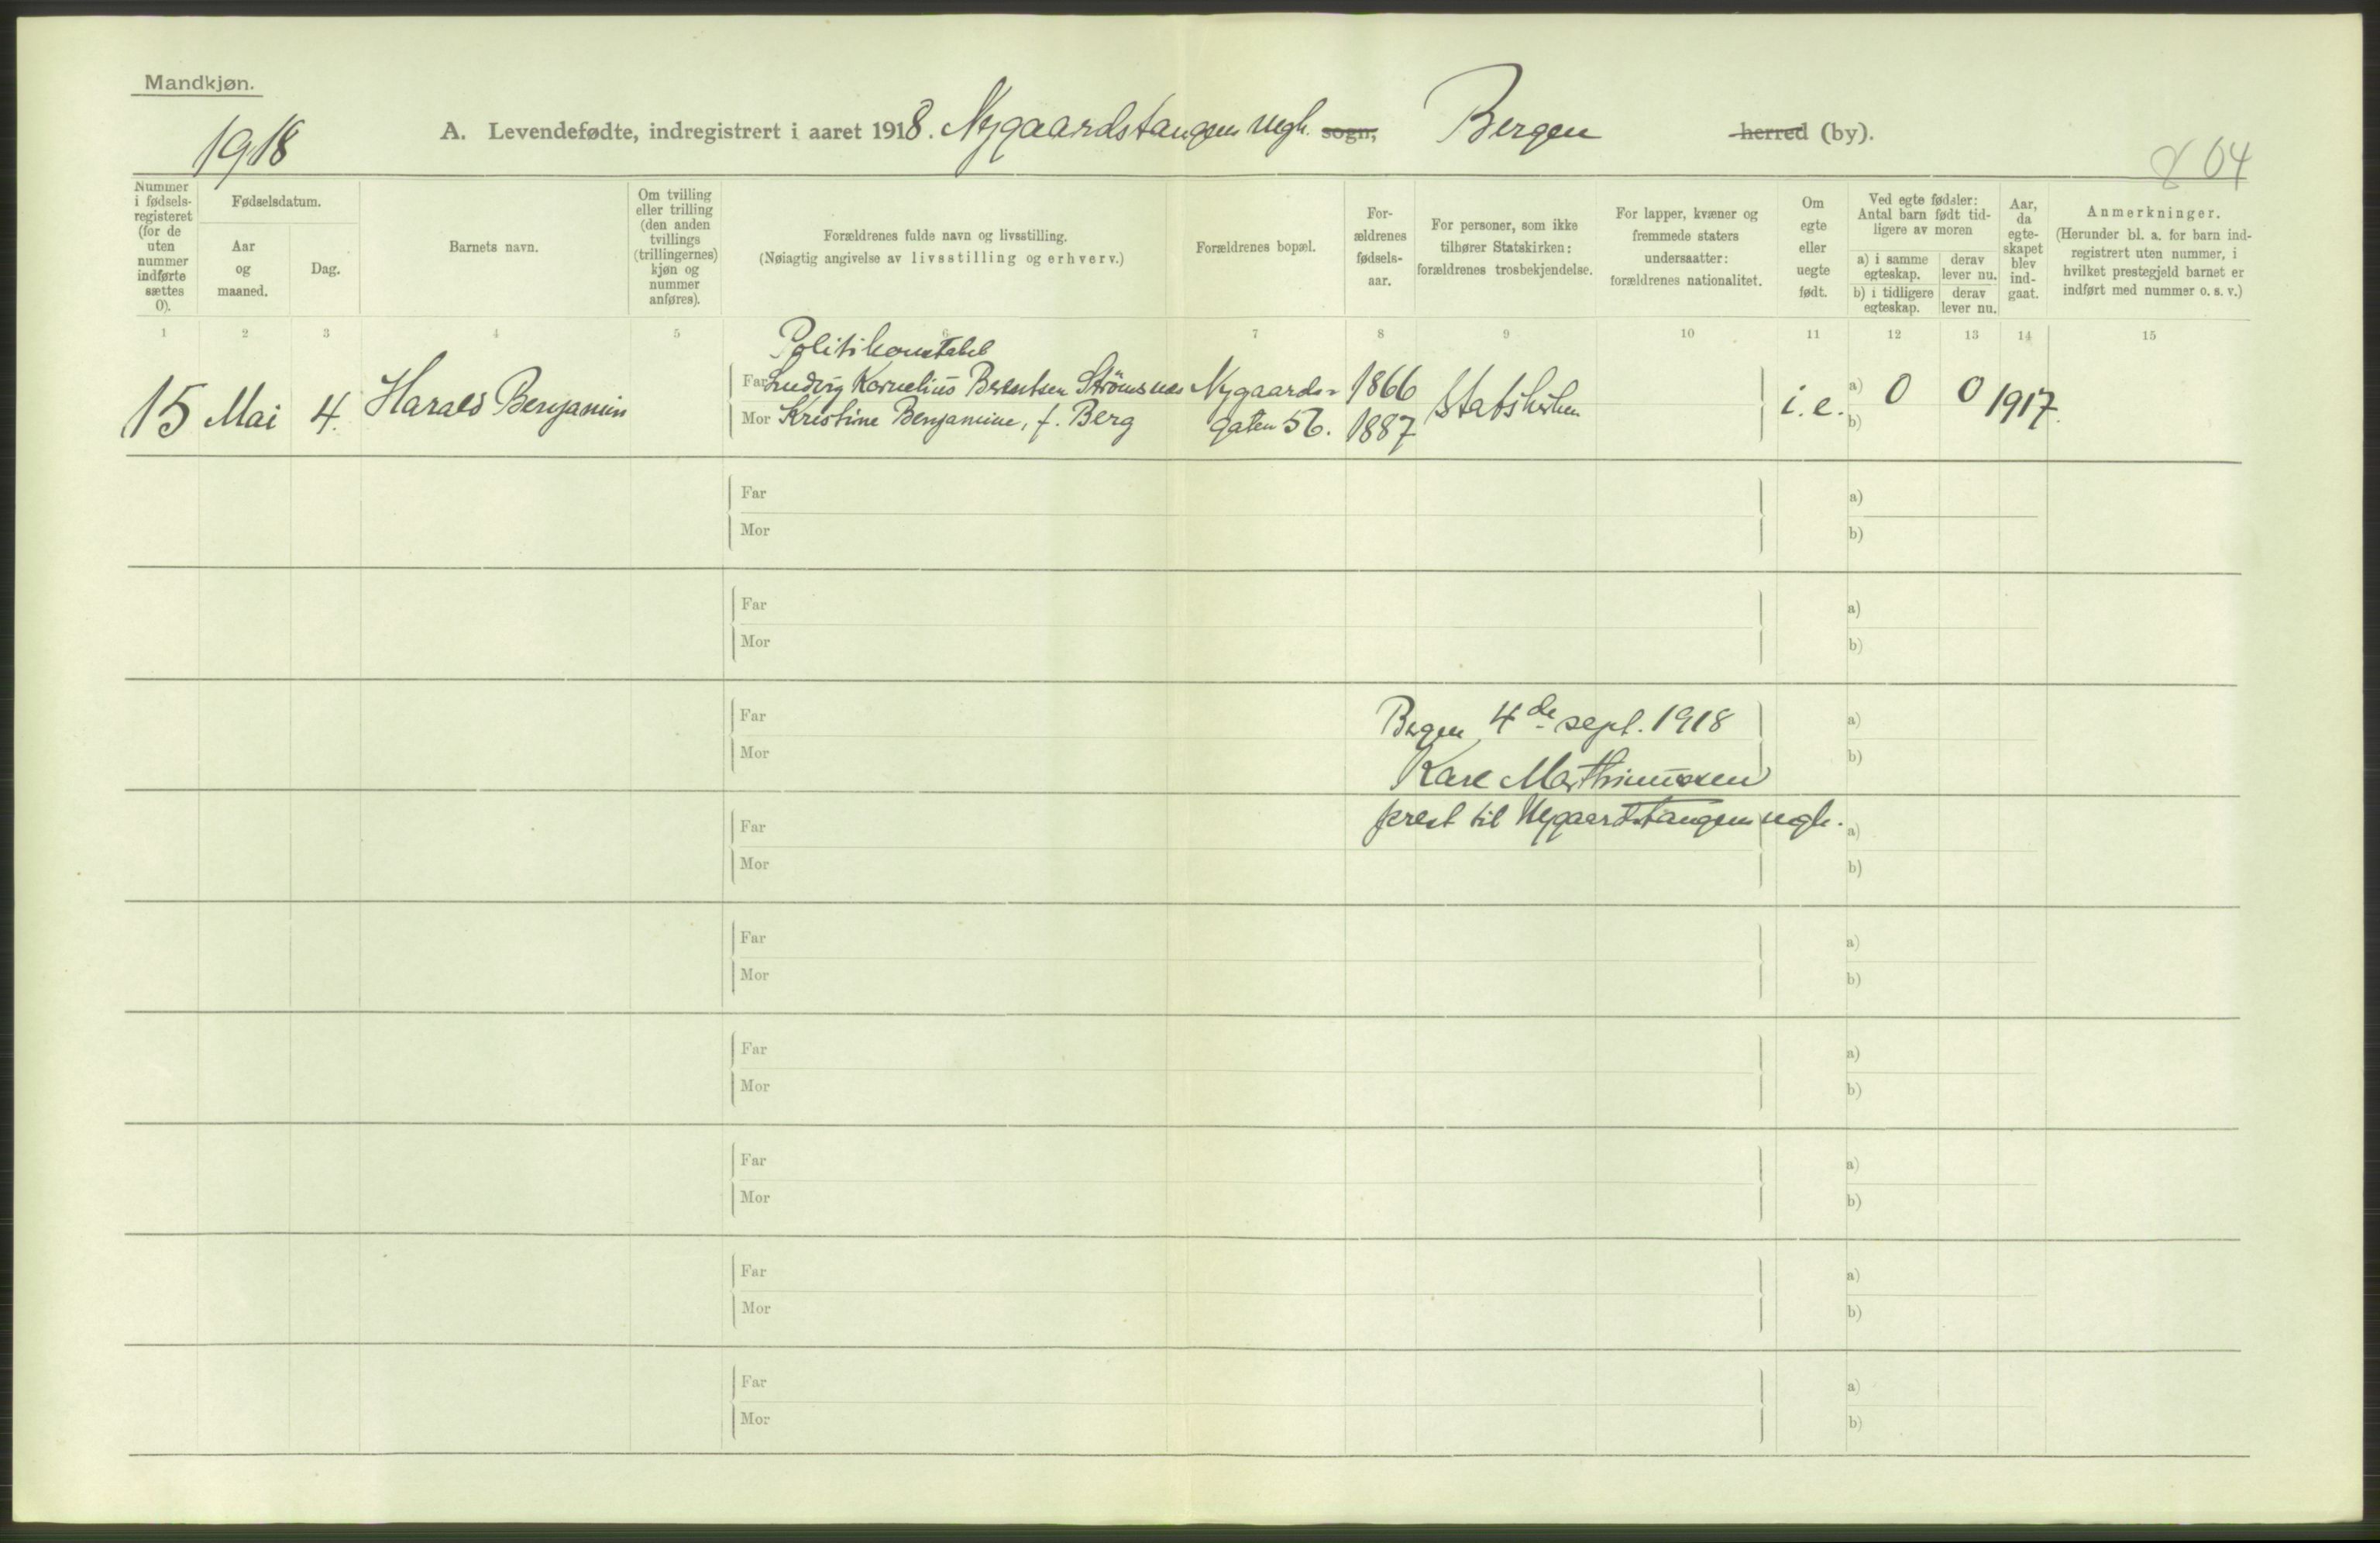 Mandkjøn.
1918
A. Levendefødte, indregistrert i aaret 1918. Nygaardstangen mgh. sogn, Bergen herred (by).
804
Nummer i fødsels-registeret (for de uten nummer indførte sættes 0).
Fødselsdatum.
Aar og maaned.
Dag.
Barnets navn.
Om tvilling eller trilling (den anden tvillings (trillingernes) kjøn og nummer anføres).
Forældrenes fulde navn og livsstilling.
(Nøiagtig angivelse av livsstilling og erhverv.)
Forældrenes bopæl.
For-ældrenes fødsels-aar.
For personer, som ikke tilhører Statskirken: forældrenes trosbekjendelse.
For lapper, kvæner og fremmede staters undersaatter: forældrenes nationalitet.
Om egte eller uegte født.
Ved egte fødsler: Antal barn født tid-ligere av moren
a) i samme egteskap.
derav lever nu.
b) i tidligere egteskap.
derav lever nu.
Aar, da egte-skapet blev ind-gaat.
Anmerkninger.
(Herunder bl. a. for barn ind-registrert uten nummer, i hvilket prestegjeld barnet er indført med nummer o. s. v.)
1 2 3 4 5 6 7 8 9 10 11 12 13 14 15
Politikonstabel
15 Mai 4. Harald Benjamin
Far Ludvig Kornelius Berentsen Strømsnes Nygaards- 1866 Statskirken i. e. a) 0 0 1917.
Mor Kristine Benjamine, f. Berg gaten 56. 1887 b)
Far a)
Mor b)
Far a)
Mor b)
Far Bergen 4de sept. 1918 a)
Mor Karl Marthinussen b)
Far prest til Nygaardstangen mgh. a)
Mor b)
Far a)
Mor b)
Far a)
Mor b)
Far a)
Mor b)
Far a)
Mor b)
Far a)
Mor b)